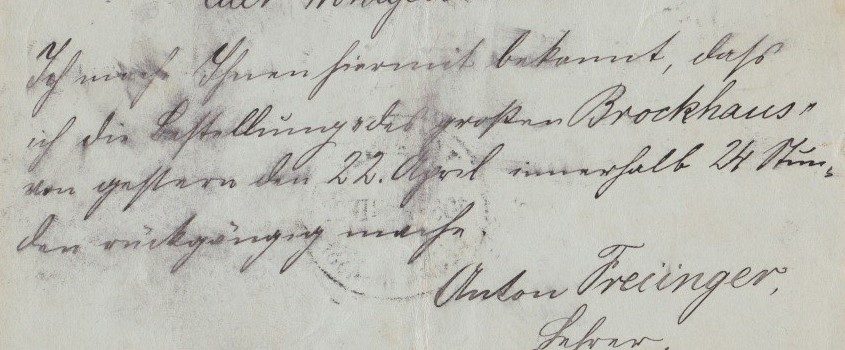 Euer Wohlgeb
Ich mach Ihnen hiermit bekannt, daß
ich die Bestellung des großen Brockhaus"
von gestern den 22. April innerhalb 24 Stun-
den rückgängig mache.
Anton Freiinger,
Lehrer.